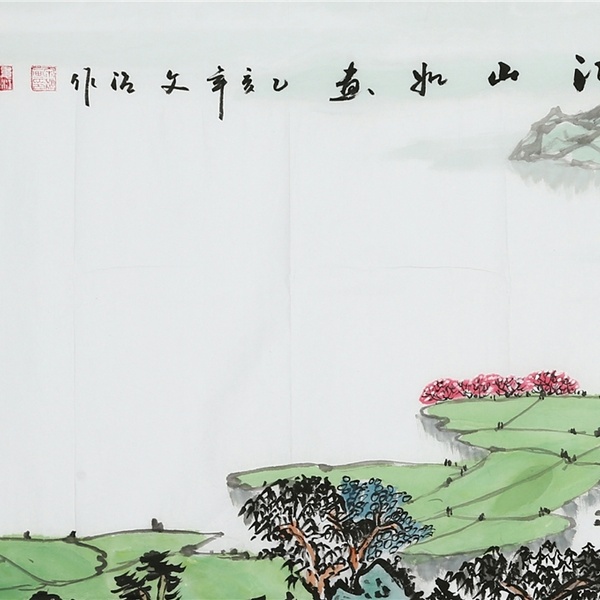 江山如畫 乙亥年 文治作